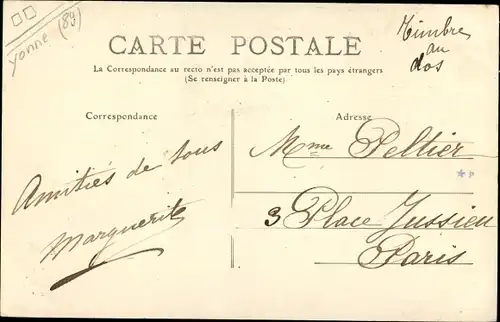 Yonne (89)
Timbre
au
dos
CARTE POSTALE
La Correspondance au recto n'est pas acceptée par tous les pays étrangers
(Se renseigner à la Poste)
Correspondance
Amitiés de tous
Marguerite
Adresse
Mme Peltier
3 Place Jussieu
Paris